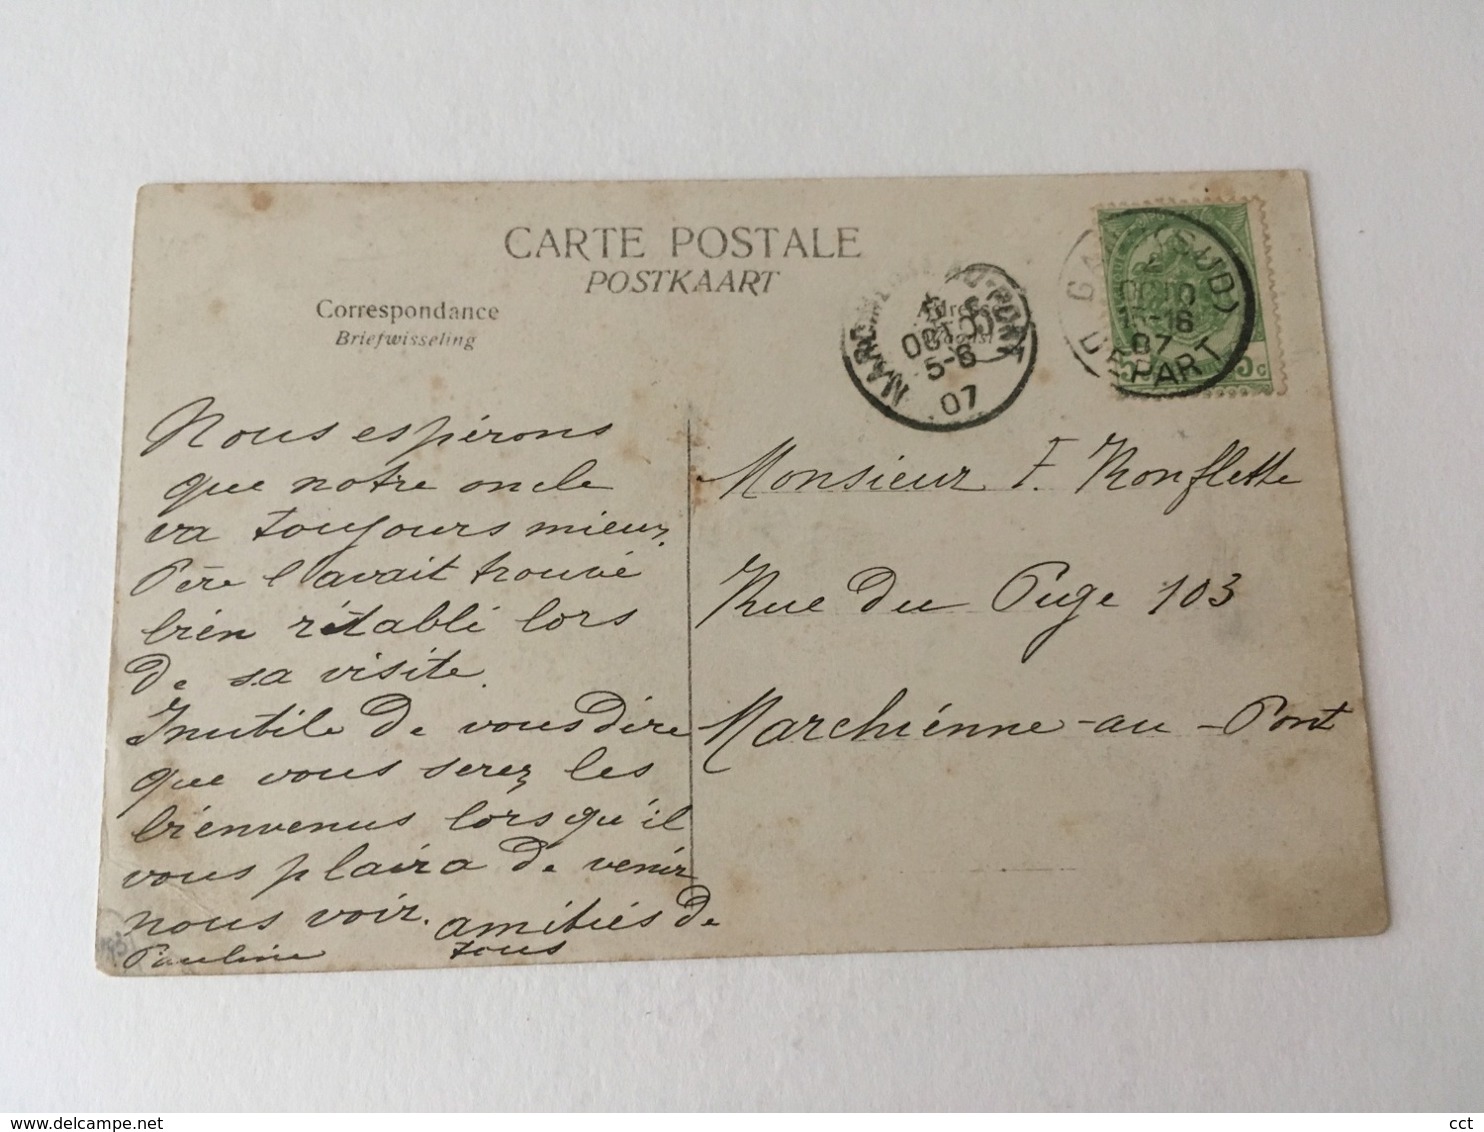 CARTE POSTALE
POSTKAART
Correspondance
Briefwisseling
Nous espérons
que notre oncle
va toujours mieux.
Père l'avait trouvé
bien rétabli lors
de sa visite.
Inutile de vous dire
que vous serez les
bienvenus lorsqu'il
vous plaira de venir
nous voir. amitiés de
Pauline tous
OCTO
5-6
07
(SUD)
07
DEPART
Monsieur F. Ronflette
Rue du Puge 103
Marchienne-au-Pont
cct